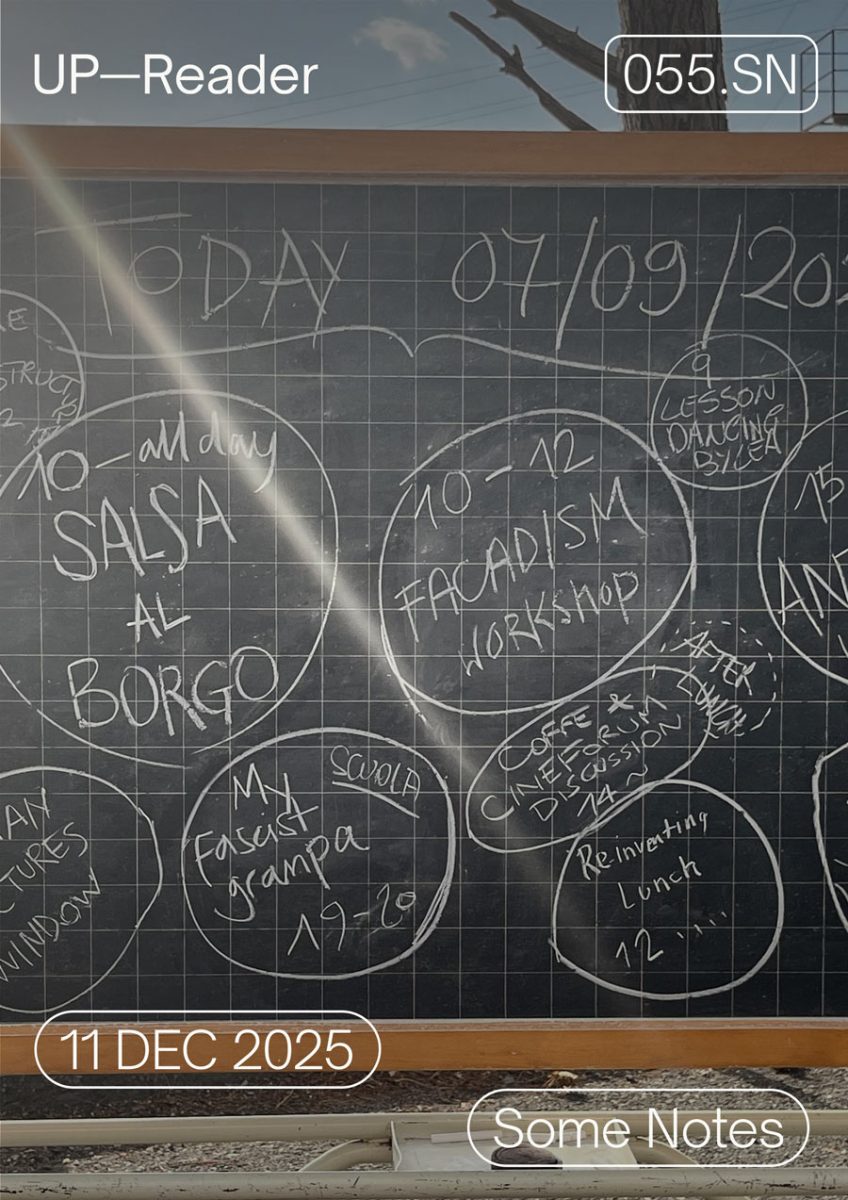 UP—Reader
055.SN
TODAY 07/09/202
9
LESSON
DANCING
BY LEA
10 – all day
SALSA
AL
BORGO
10 – 12
FACADISM
WORKSHOP
15
AFTER
LUNCH
COFFE &
CINEFORUM
DISCUSSION
14 ~
SCUOLA
My
Fascist
grampa
19-20
Re-inventing
Lunch
12 ....
WINDOW
11 DEC 2025
Some Notes